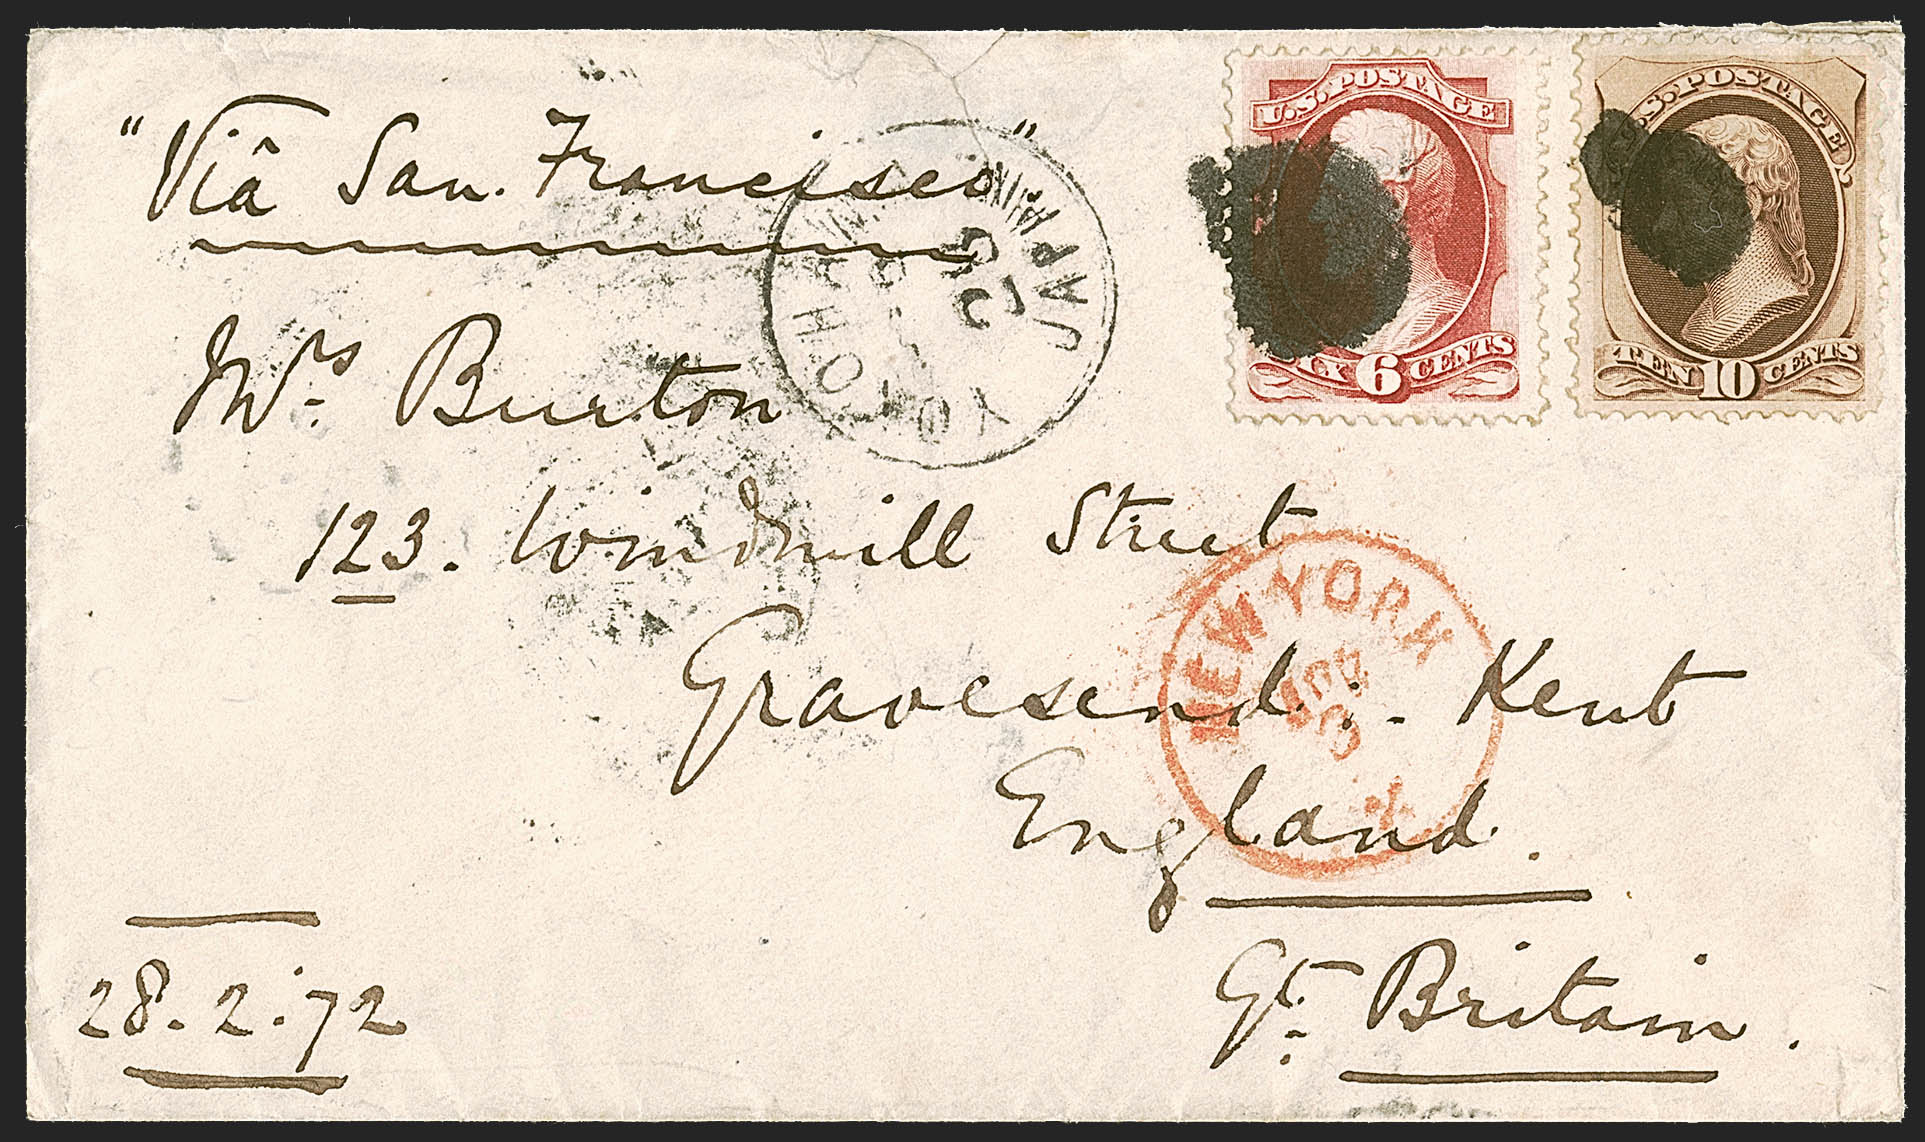 "Viâ San. Francisco".
Mrs. Burton
123. Windmill Street
Gravesend. Kent
England.
Gt. Britain.
28.2.72
U.S. POSTAGE
6 CENTS
U.S. POSTAGE
TEN 10 CENTS
YOKOHAMA
JAPAN
NEW YORK